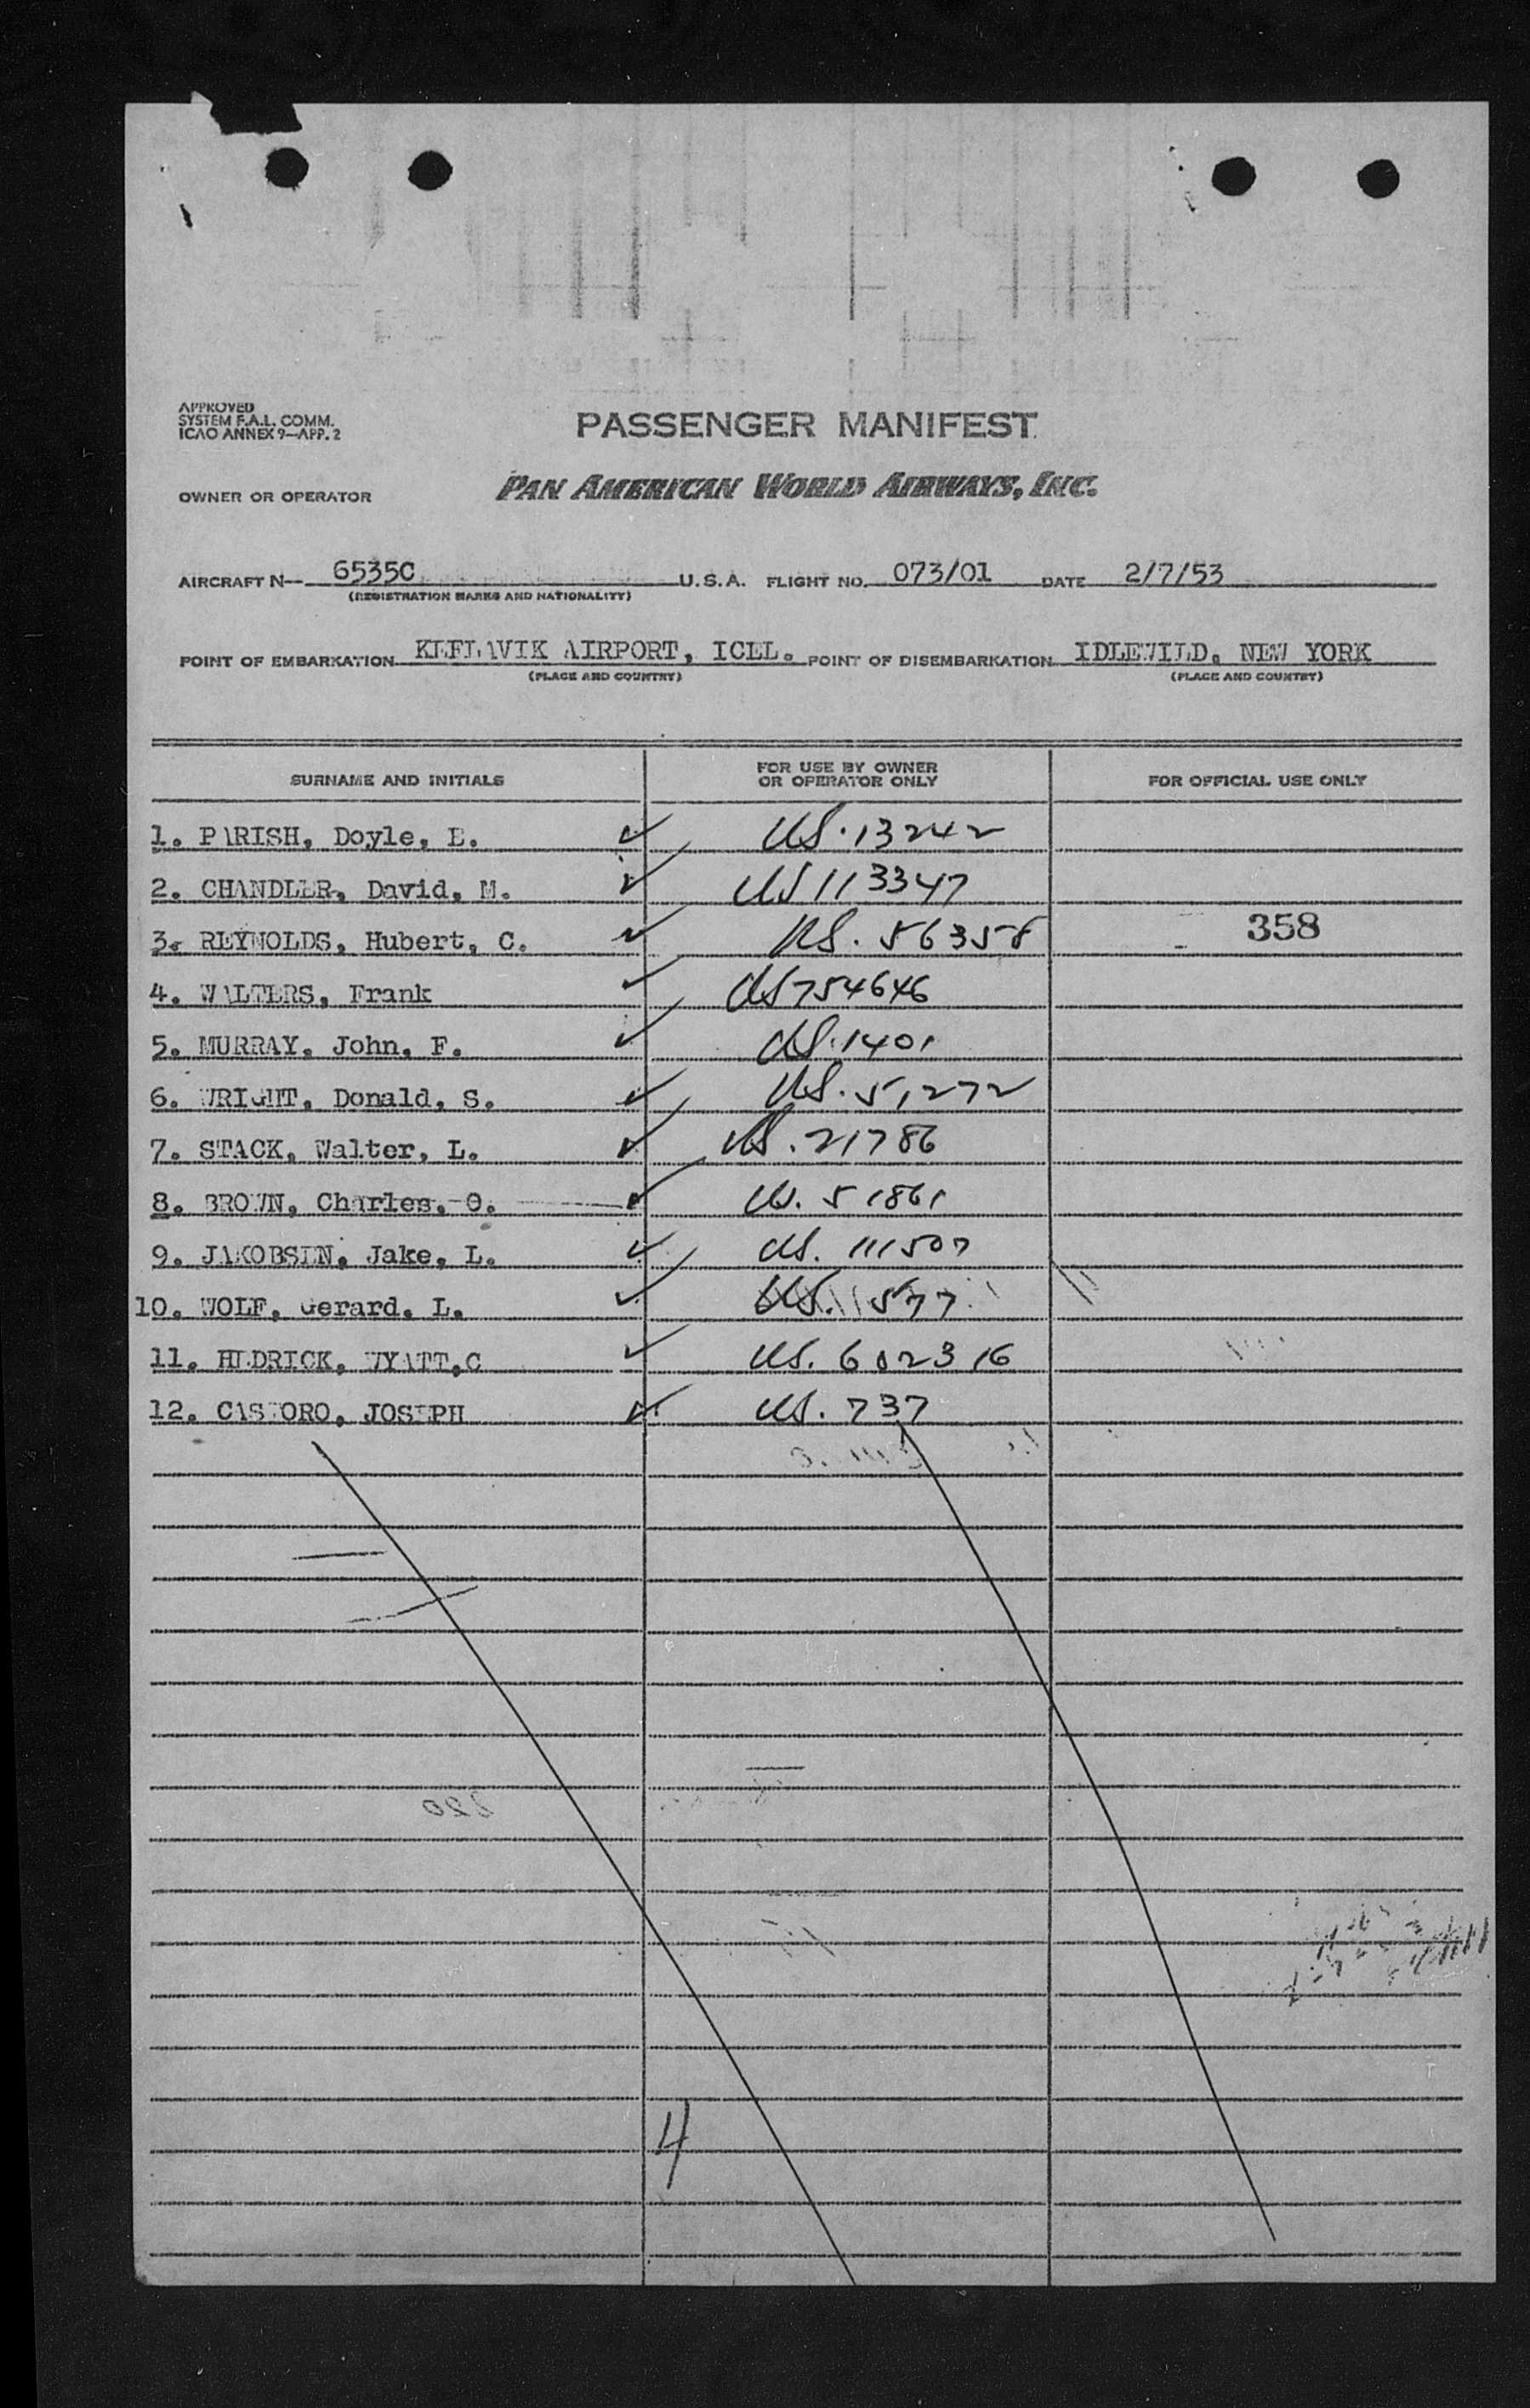 APPROVED
SYSTEM F.A.L. COMM.
ICAO ANNEX 9—APP. 2
PASSENGER MANIFEST
OWNER OR OPERATOR PAN AMERICAN WORLD AIRWAYS, INC.
AIRCRAFT N— 6535C U.S.A. FLIGHT NO. 073/01 DATE 2/7/53
(REGISTRATION MARKS AND NATIONALITY)
POINT OF EMBARKATION KEFLAVIK AIRPORT, ICEL. POINT OF DISEMBARKATION IDLEWILD, NEW YORK
(PLACE AND COUNTRY) (PLACE AND COUNTRY)
SURNAME AND INITIALS FOR USE BY OWNER OR OPERATOR ONLY FOR OFFICIAL USE ONLY
1. PARISH, Doyle, E. US. 13242
2. CHANDLER, David, M. US 113347
3. REYNOLDS, Hubert, C. US. 56358 358
4. WALTERS, Frank US 754646
5. MURRAY, John, F. US. 1401
6. WRIGHT, Donald, S. US. 51272
7. STACK, Walter, L. US. 21786
8. BROWN, Charles, O. US. 51861
9. JAKOBSEN, Jake, L. US. 111507
10. WOLF, Gerard, L. US. 11577
11. HEDRICK, WYATT,C US. 602316
12. CASTORO, JOSEPH US. 737
4